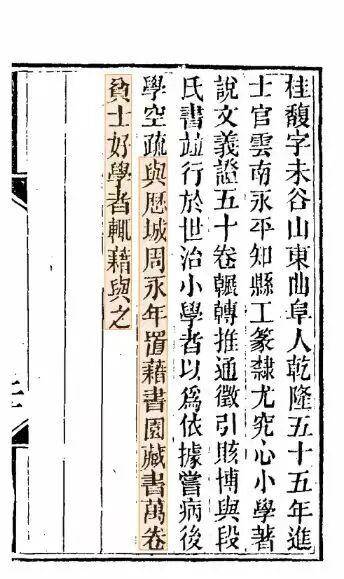 桂馥字未谷山東曲阜人乾隆五十五年進
士官雲南永平知縣工篆隸尤究心小學著
說文義證五十卷輾轉推通徵引賅博與段
氏書並行於世治小學者以爲依據嘗病後
學空疏與歷城周永年置藉書園藏書萬卷
貧士好學者輒藉與之